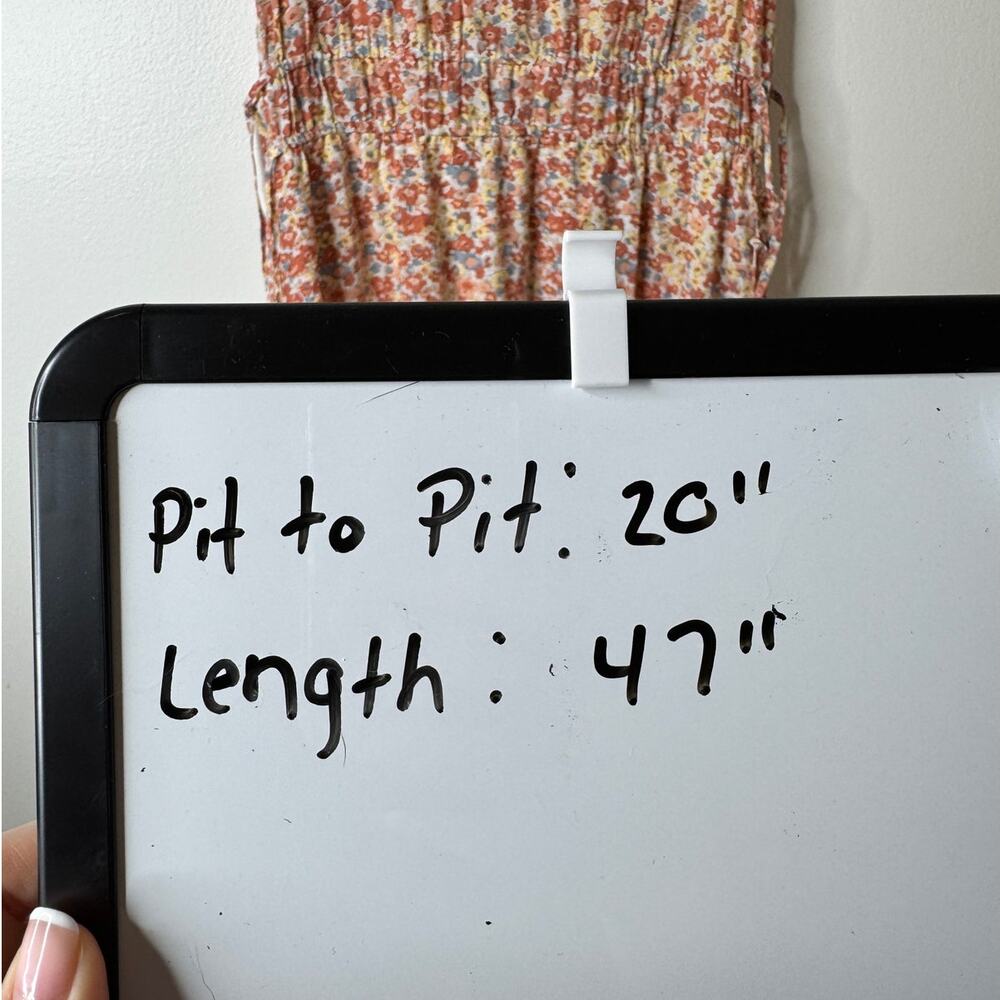 Pit to Pit: 20"
Length: 47"